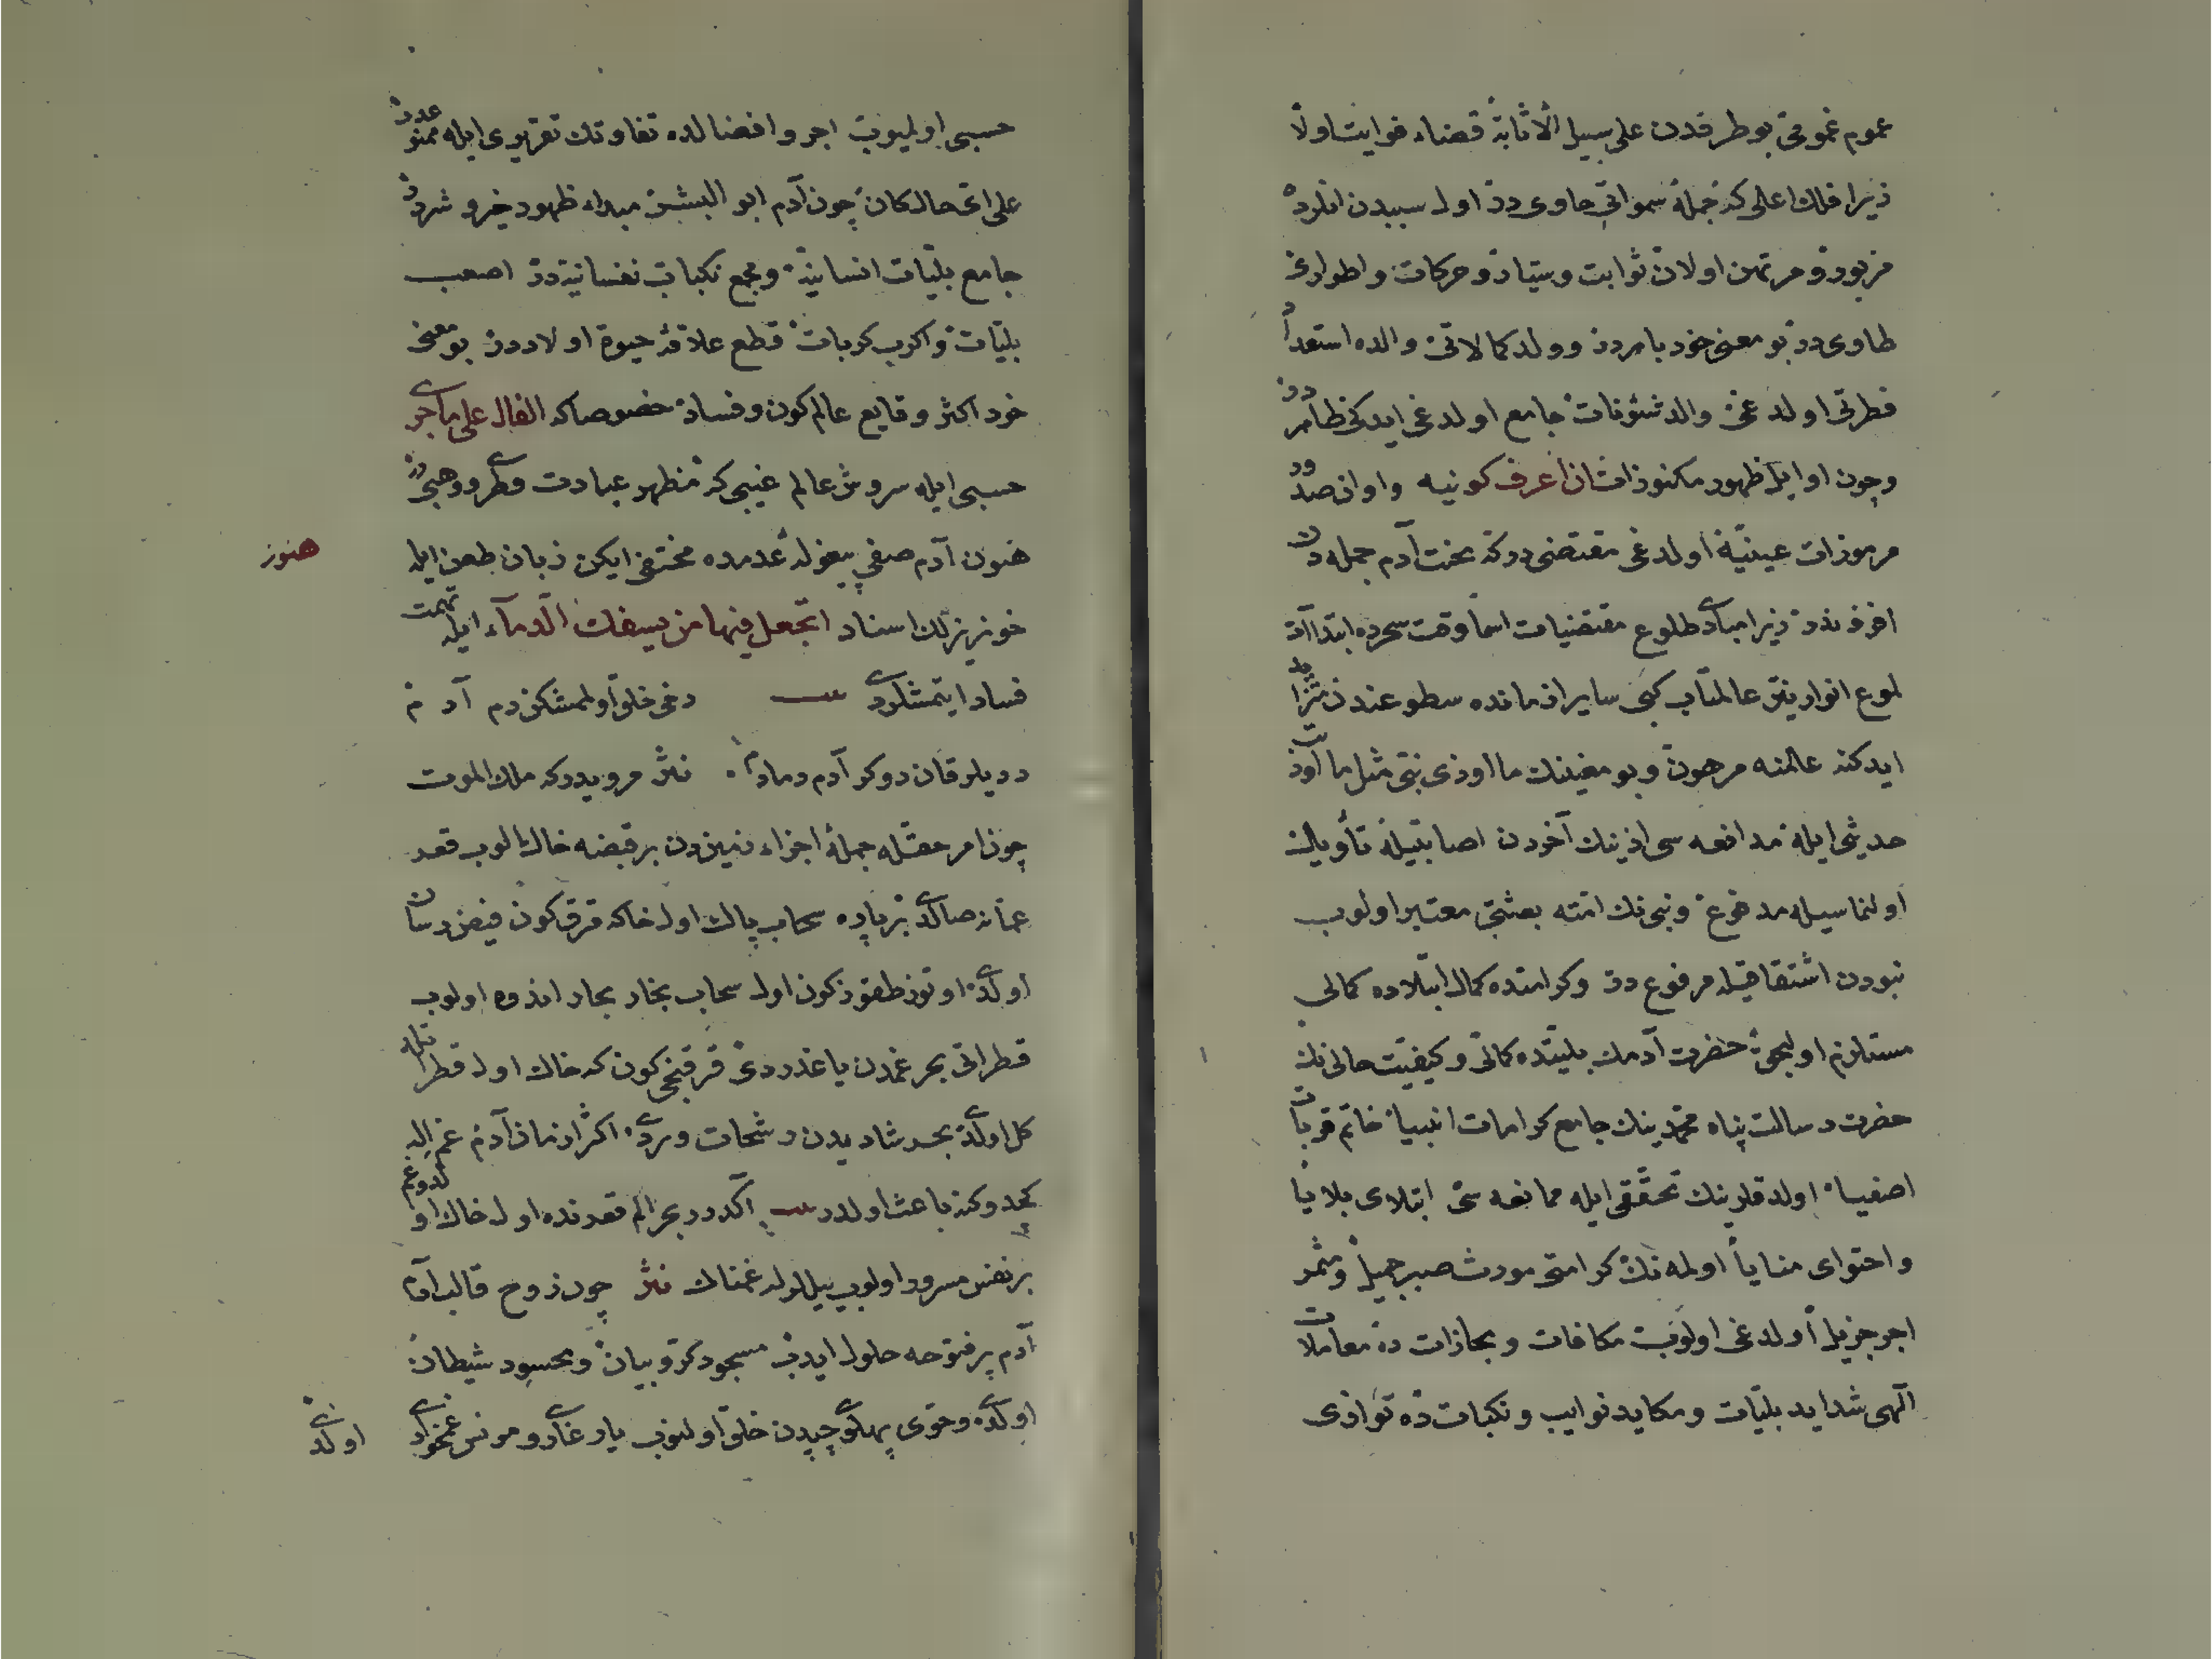 عموم غمومی بو طرقدن علی سبیل الاثابة قضاء فوایت اولا
زیرا فلك اعلی که جملۀ سمواتی حاوی در اول سببدن انلرده
مزبور و مرتهن اولان ثوابت و سیّار و حرکات و اطوارى
طاوی در بو معنی خود باهردر و ولد کمالاتی والده استعداد
فطرتی اولدغی والد شئوناته جامع اولدغی ایدکی ظاهردر
وچون اوایل ظهور مکنوزات ان أعرف کونیه و اوان صدور
مرموزات عینیّه اولدغی مقتضی درکه بخت آدم جمله دن
افزوندر زیرا مبادی طلوع مقتضیات اسما وقت سحرده ابتداآت
لموع انوار نیّر عالمتاب کبی سایر ازمانده سطوعندن
ایدکنه عالمنه مرهون و بو معنینك ما اوذی نبی مثل ما اوذیت
حدیثی ایله مدافعه سی اذینك آخردن اصابتیله تأویل
اولنماسیله مدفوع و نبی نك امته بعثتی معتبر اولوب
نبودن اشتقاقیله مرفوع در وکرامتده کمال ابتلاده کمالی
مستلزم اولیجق حضرت آدمك بلیتده کمالی وکیفیّت حالی نك
حضرت رسالت پناه محمدینك جامع کرامات انبیا خاتم قربات
اصفیا اولدقلرینك تحقّقی ایله ممانعه سی ابتلای بلایا
و احتوای منایا اولمه نك کرامتی مورث صبر جمیل و مثمر
اجر جزیل اولدغی اولوب مکافات و مجازات ده معاملات
الٓهی شداید بلیّات و مکاید نوایب و نکبات ده توازی
حسبی اولیوب اجر و افضالده تفاوتك تقریری ایله ممنوعدر
علی ای حال کان چون آدم ابو البشر مبداء ظهور خیر و شردر
جامع بلیّات انسانیّه و مجمع نکبات نفسانیّه در اصعب
بلیّات و اکرب کربات قطع علاقۀ حیوة اولاد در بو معنی
خود اکثر وقایع عالم کون و فساد خصوصاکه الفال علی ماجری
حسبی ایله سروش عالم غیبی که مظهر عبادت فطری و وهبی در
هنوز آدم صفی پیغوله عدمده مختفی ایکن زبان طعن ایله
هنوز
خونریزلك اسناد اتجعل فیها من یسفك الدمآء ایله تهمت
فساد ایتمشلردی دغی خلق اولمشکن دم آدم
نثر مرویدرکه ملك الموت
چون امر حقله جملۀ اجزاء زمیندن بر قبضه خاك الوب قعر
عمّانه صالدی بر پاره سحاب پاك اول خاکه قرق کون فیض رسان
اولدی اوتوز طقوز کون اول سحاب بخار بحار اندوه اولوب
قطراتی بحر غمدن یاغدردی قرقنجی کون که خاك اول قطرات ایله
کل اولدی بحر شادیدن رشحات ویردی اکثر ازمان آدم غم ایله
کچدوکنه باعث اولدر اکدردر بحر الم قعرنده اول خاك اولدوغم
بر نفس مسرور اولوب ییللرله غمناك نثر چون روح قالب آدم
آدم پر فتوحه حلول ایدب مسجود کروبیان و محسود شیطان
اولدی و حوّی پهلوی چپدن خلق اولنوب یار غار و مونس غمخواری
اولدی